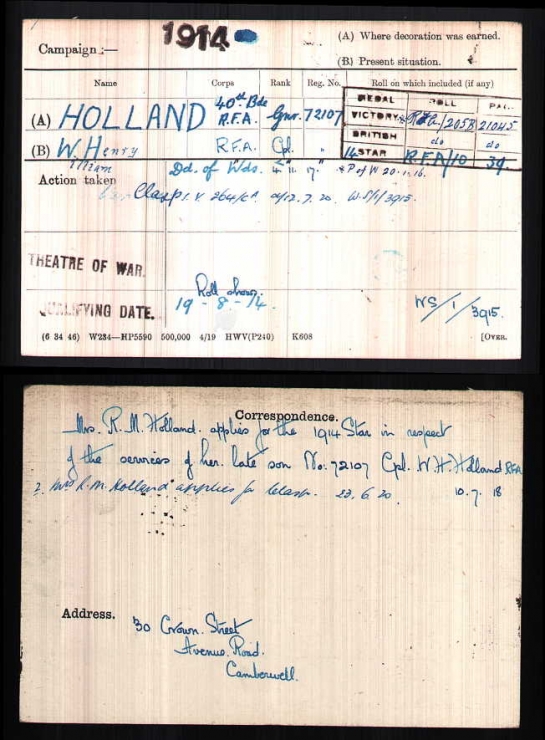 Campaign :— 1914
(A) Where decoration was earned.
(B) Present situation.
Name Corps Rank Reg. No. Roll on which included (if any)
(A) HOLLAND 40th Bde R.F.A. Gnr. 72107
(B) W. Henry R.F.A. Cpl. "
William
MEDAL ROLL PAGE
VICTORY RFA/205B 21045
BRITISH do do
14 STAR RFA/10 39
Action taken
Dd. of Wds. 4" 11 17" & P of W 20.1.16.
Clasp I.V. 264/ca d/12.7.20. W.S/1/3915.
THEATRE OF WAR.
QUALIFYING DATE.
Roll shows
19 - 8 - 14.
WS/1/3915.
(6 34 46) W234—HP5590 500,000 4/19 HWV(P240) K608 [OVER.
Correspondence.
Mrs. R. M. Holland. applies for the 1914 Star in respect
of the services of her late son No. 72107 Cpl. W. H. Holland RFA
10.7.18
2. Mrs R. M. Holland applies for Clasp. 23.6.20
Address.
30 Crown Street
Avenue Road.
Camberwell.